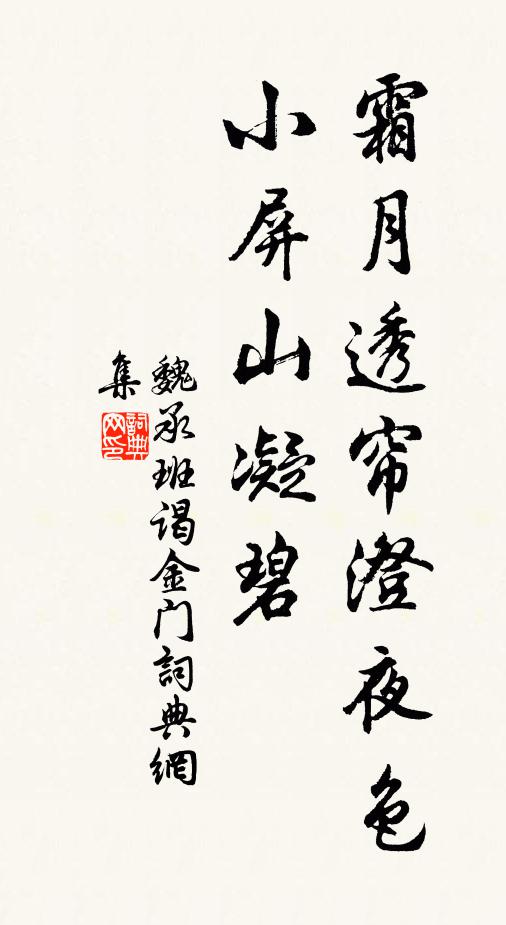 霜月透帘澄夜色
小屏山凝碧
魏承班谒金门詞典網
集
詞典网印